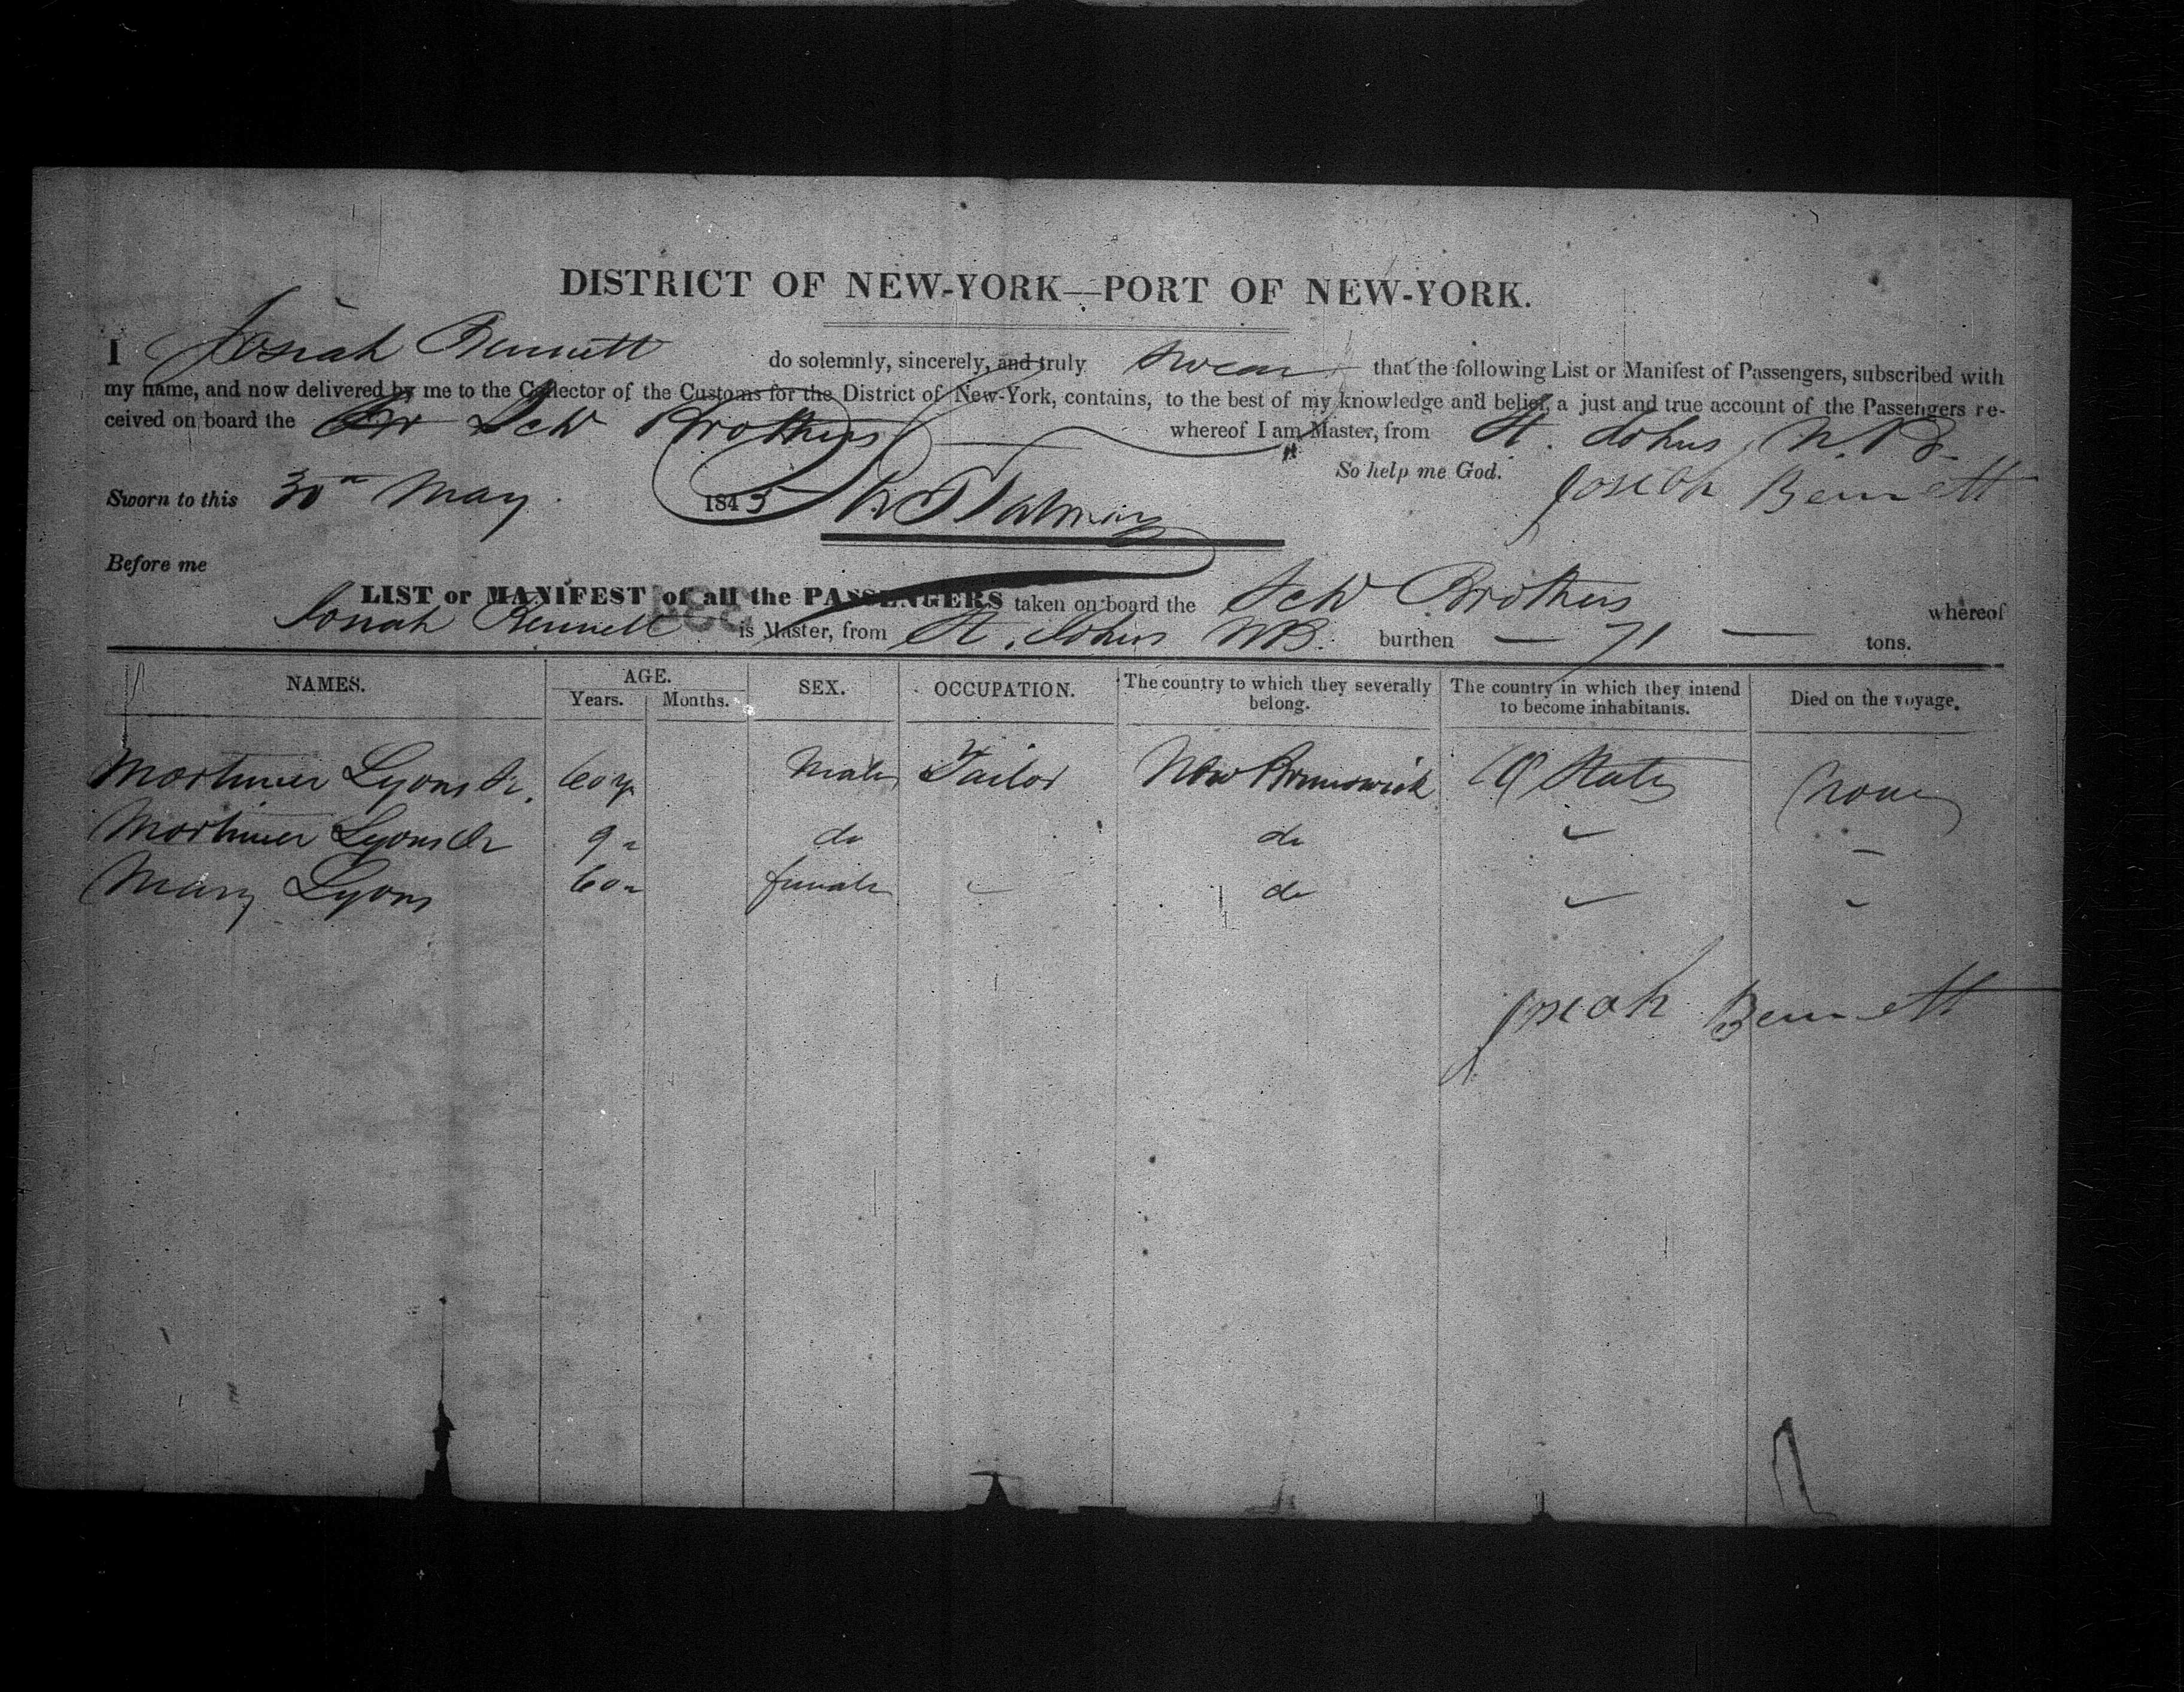 DISTRICT OF NEW-YORK—PORT OF NEW-YORK.
I Josiah Bennett do solemnly, sincerely, and truly swear that the following List or Manifest of Passengers, subscribed with
my name, and now delivered by me to the Collector of the Customs for the District of New-York, contains, to the best of my knowledge and belief, a just and true account of the Passengers re-
ceived on board the Br Schr Brothers whereof I am Master, from St. Johns, N.B.
So help me God.
Sworn to this 30th May 1845 Josiah Bennett
Before me
LIST or MANIFEST of all the PASSENGERS taken on board the Schr Brothers whereof
Josiah Bennett is Master, from St. Johns NB. burthen — 71 — tons.
NAMES. AGE. Years. Months. SEX. OCCUPATION. The country to which they severally belong. The country in which they intend to become inhabitants. Died on the voyage.
Mortimer Lyons Sr. 60 y Male Tailor New Brunswick U States None
Mortimer Lyons Jr 9 " do do
Mary Lyons 60 " female do
Josiah Bennett